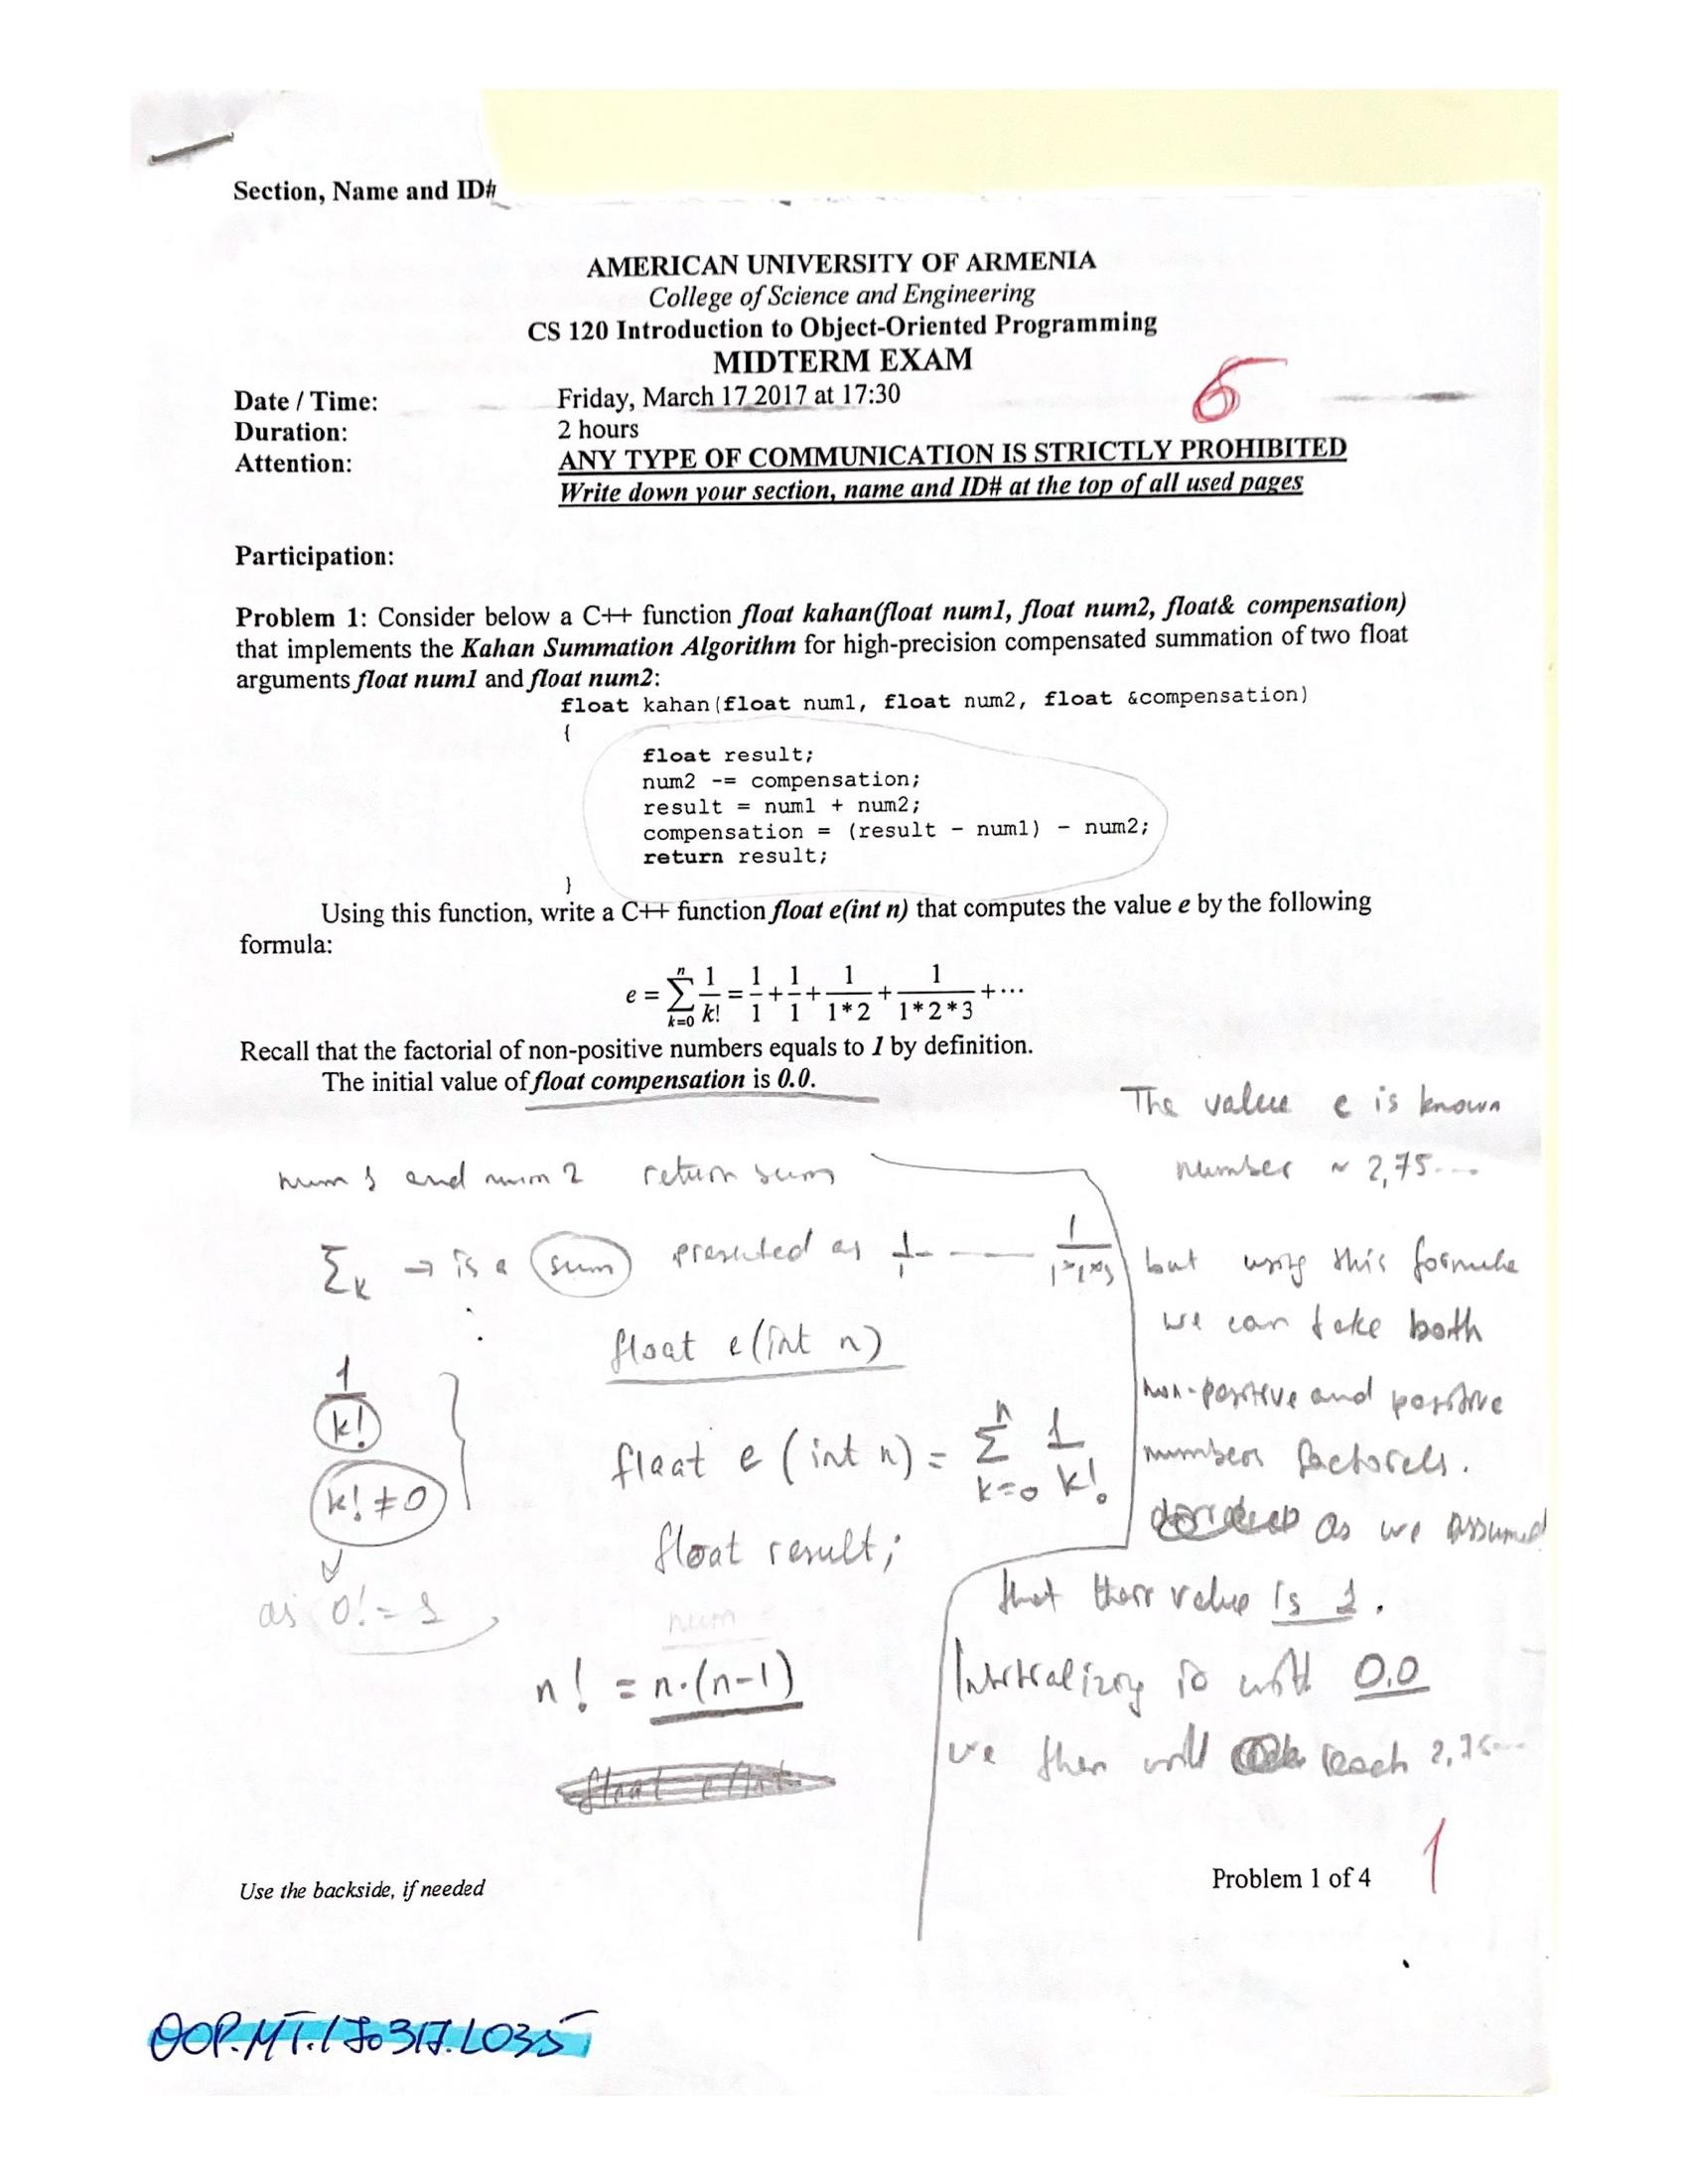 Section, Name and ID#
AMERICAN UNIVERSITY OF ARMENIA
College of Science and Engineering
CS 120 Introduction to Object-Oriented Programming
MIDTERM EXAM
Date / Time: Friday, March 17 2017 at 17:30
5
Duration: 2 hours
Attention: ANY TYPE OF COMMUNICATION IS STRICTLY PROHIBITED
Write down your section, name and ID# at the top of all used pages
Participation:
Problem 1: Consider below a C++ function float kahan(float num1, float num2, float& compensation)
that implements the Kahan Summation Algorithm for high-precision compensated summation of two float
arguments float num1 and float num2:
float kahan(float num1, float num2, float &compensation)
{
float result;
num2 -= compensation;
result = num1 + num2;
compensation = (result - num1) - num2;
return result;
}
Using this function, write a C++ function float e(int n) that computes the value e by the following
formula:
e = ∑_{k=0}^{n} 1/k! = 1/1 + 1/1 + 1/1*2 + 1/1*2*3 + ···
Recall that the factorial of non-positive numbers equals to 1 by definition.
The initial value of float compensation is 0.0.
num 1 and num 2 return sum
∑k → is a sum presented as 1/1 - —— 1/1*2*3
float e(int n)
1/k!
k! ≠ 0
as 0! = 1
float e (int n) = ∑_{k=0}^{n} 1/k!
float result;
num
n! = n·(n-1)
The value e is known
number ~ 2,75....
but using this formula
we can take both
non-positive and positive
numbers factorels.
as we assumed
that their value is 1.
Initializing is with 0.0
we then will reach 2,75...
Use the backside, if needed
Problem 1 of 4
1
OOP.MT.170317.L035